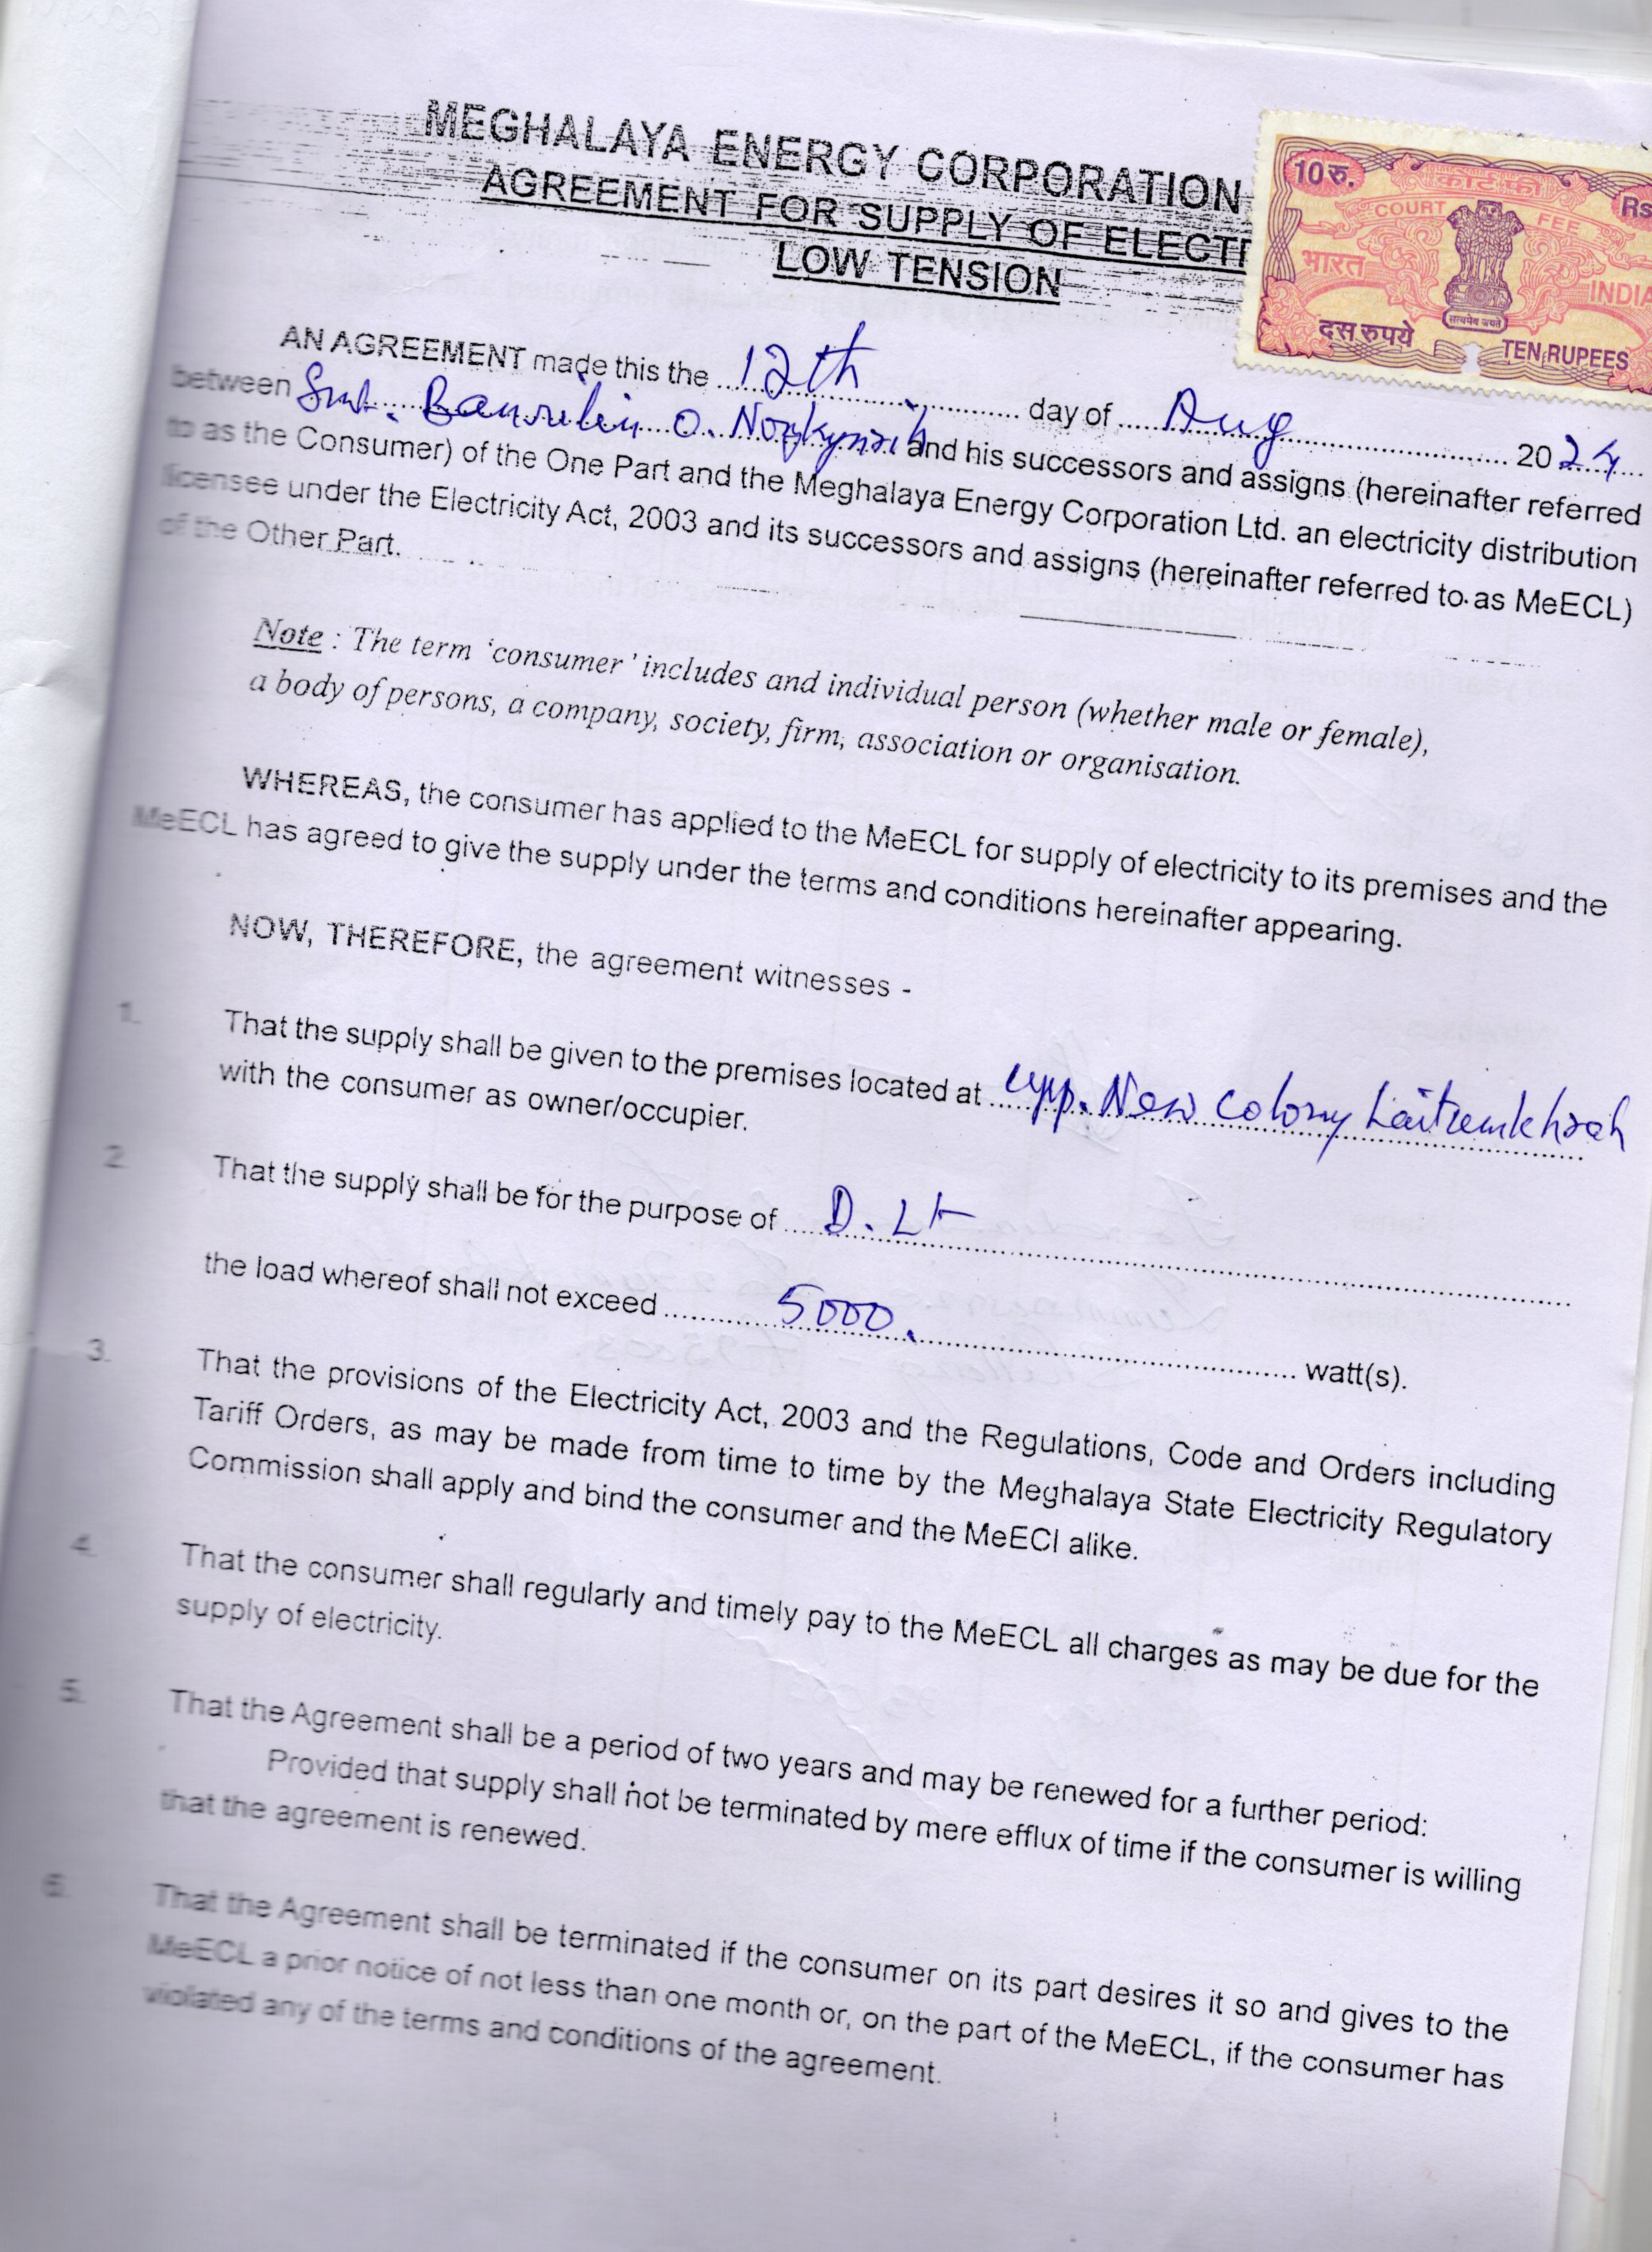 MEGHALAYA ENERGY CORPORATION
AGREEMENT FOR SUPPLY OF ELECTR
LOW TENSION
10 रु.
कोर्ट फी
Rs
COURT FEE
भारत
INDIA
सत्यमेव जयते
दस रुपये
TEN RUPEES
AN AGREEMENT made this the 12th day of Aug 2024
between Smt. O. and his successors and assigns (hereinafter referred
to as the Consumer) of the One Part and the Meghalaya Energy Corporation Ltd. an electricity distribution
licensee under the Electricity Act, 2003 and its successors and assigns (hereinafter referred to as MeECL)
of the Other Part.
Note : The term 'consumer' includes and individual person (whether male or female),
a body of persons, a company, society, firm, association or organisation.
WHEREAS, the consumer has applied to the MeECL for supply of electricity to its premises and the
MeECL has agreed to give the supply under the terms and conditions hereinafter appearing.
NOW, THEREFORE, the agreement witnesses -
1. That the supply shall be given to the premises located at upp. New Colony Laitumkhrah
with the consumer as owner/occupier.
2. That the supply shall be for the purpose of D. Lt
the load whereof shall not exceed 5000. watt(s).
3. That the provisions of the Electricity Act, 2003 and the Regulations, Code and Orders including
Tariff Orders, as may be made from time to time by the Meghalaya State Electricity Regulatory
Commission shall apply and bind the consumer and the MeECl alike.
4. That the consumer shall regularly and timely pay to the MeECL all charges as may be due for the
supply of electricity.
5. That the Agreement shall be a period of two years and may be renewed for a further period:
Provided that supply shall not be terminated by mere efflux of time if the consumer is willing
that the agreement is renewed.
6. That the Agreement shall be terminated if the consumer on its part desires it so and gives to the
MeECL a prior notice of not less than one month or, on the part of the MeECL, if the consumer has
violated any of the terms and conditions of the agreement.